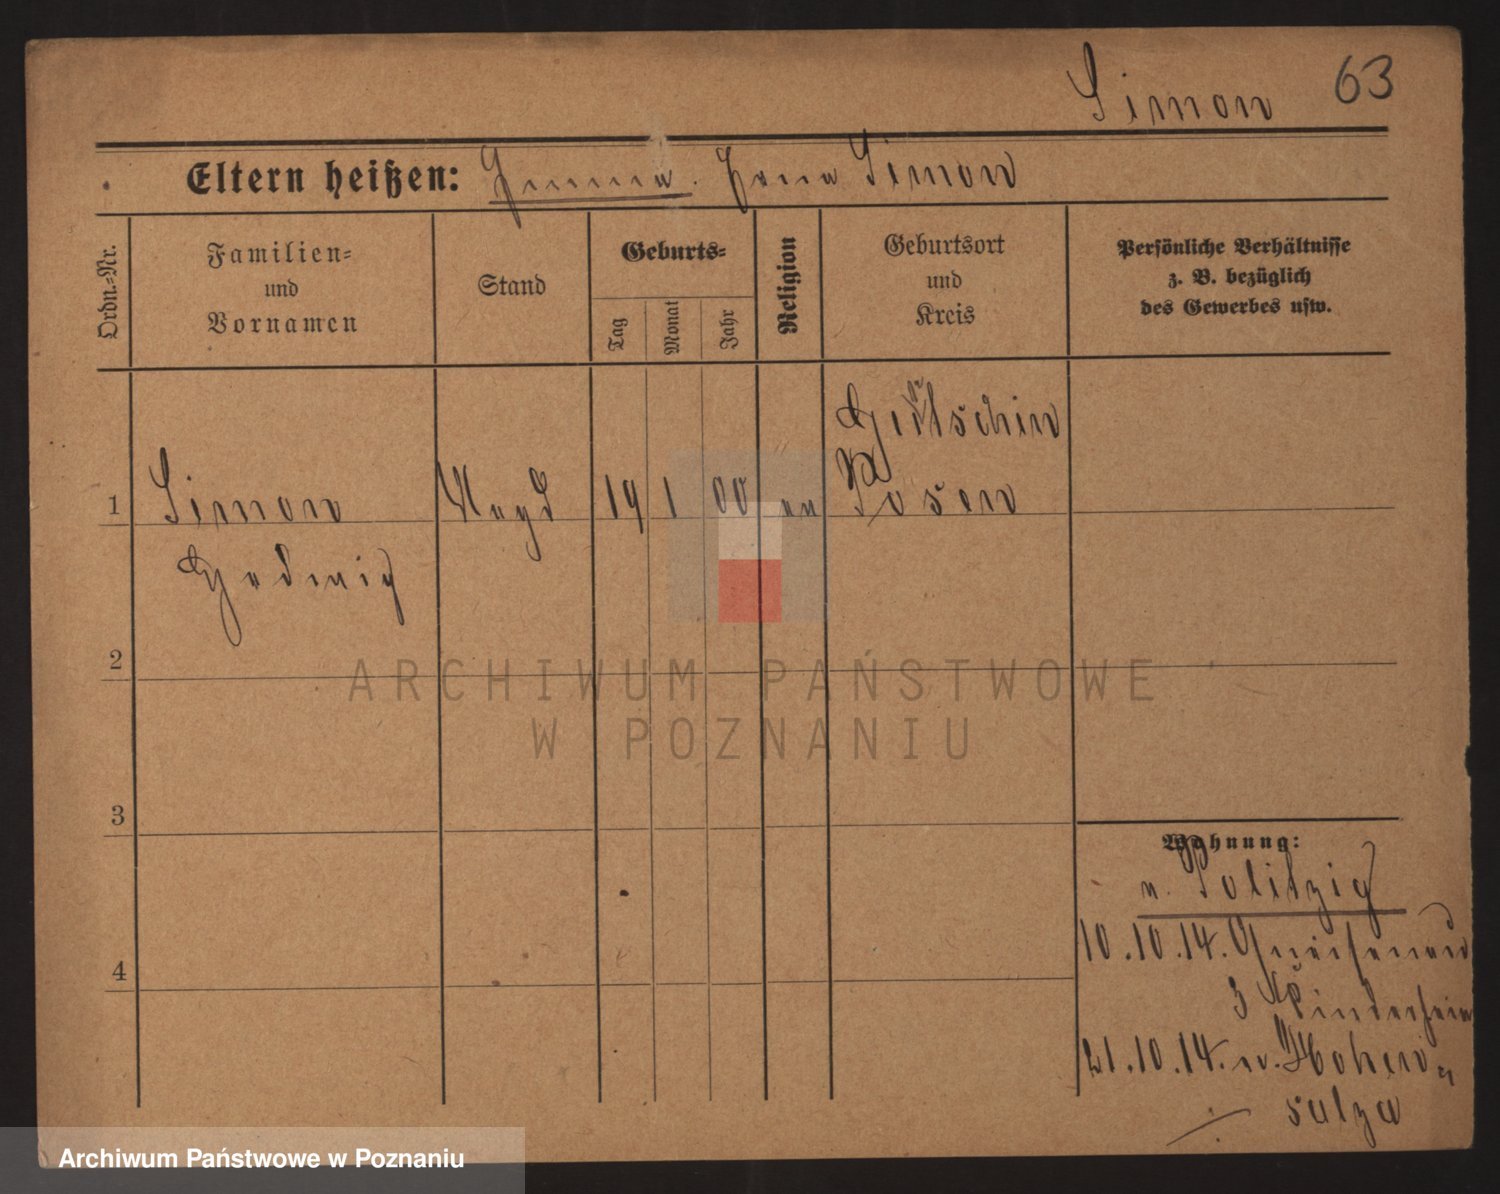 Simon 63
Eltern heißen: Simon
Ordn.-Nr.
Familien-
und
Vornamen
Stand
Geburts-
Tag
Monat
Jahr
Religion
Geburtsort
und
Kreis
Persönliche Verhältnisse
z. B. bezüglich
des Gewerbes usw.
1 Simon Magd 19 1 00
Posen
Hedwig
2
3
4
Wohnung:
n. Politzig
10.10.14. Gneisenau
3 Kinderheim
21.10.14. n. Hohen-
salza
ARCHIWUM PAŃSTWOWE
W POZNANIU
Archiwum Państwowe w Poznaniu